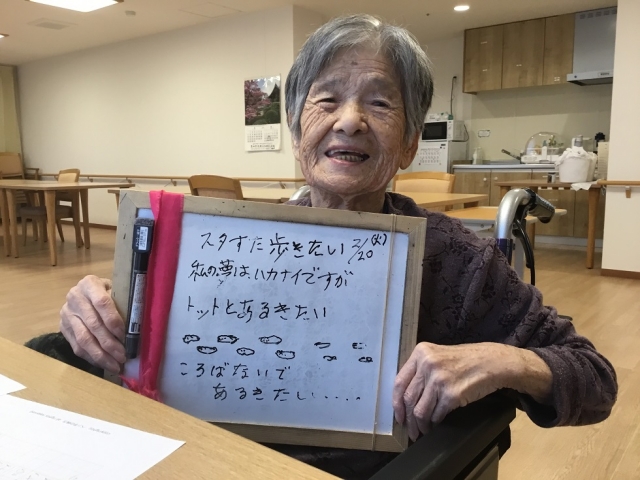 スタすた歩きたい 2/20(火)
私の夢は、ハカナイですが
トットとあるきたい
ころばないで
あるきたい・・・・